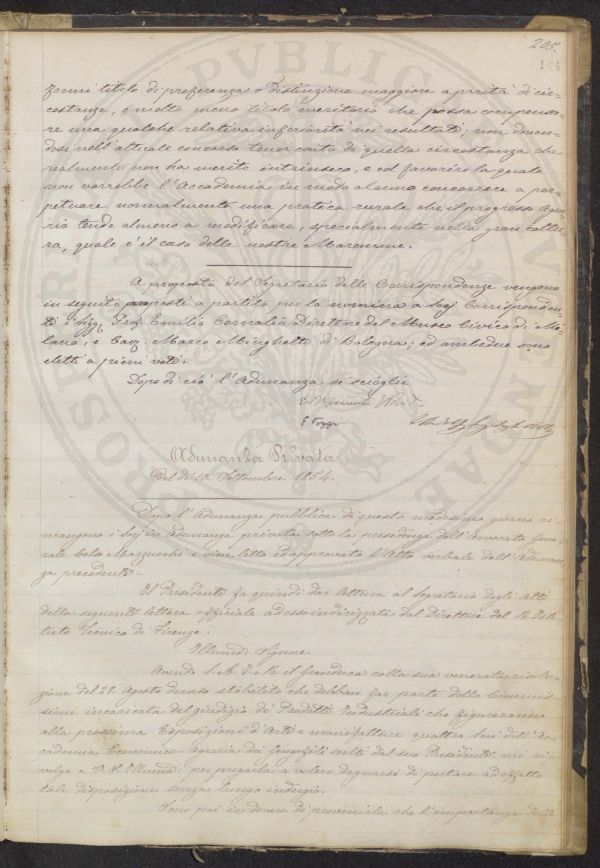 205.
164
formi titolo di preferenza o distinzione maggiore a parità di cir=
costanze, e molto meno titolo meritorio che possa compensa=
re una qualche relativa inferiorità nei resultati; non doven=
dosi nell'attuale concorso tener conto di quella circostanza che
realmente non ha merito intrinseco, e col favorire la quale
non vorrebbe l'Accademia in modo alcuno concorrere a per=
petuare normalmente una pratica rurale che il progresso agra=
rio tende almeno a modificare, specialmente nella gran cultu=
ra, quale è il caso delle nostre Maremme.
A proposta del Segretario delle Corrispondenze vengono
in seguito posti a partito per la nomina a Socj Corrisponden=
ti i Sigg. Prof. Emilio Cornalia Direttore del Museo Civico di Mi=
lano, e Cav. Marco Minghetti di Bologna; ed ambedue sono
eletti a pieni voti.
Dopo di ciò l'Adunanza si scioglie
Adunanza Privata
del dì Settembre 1854.
Dopo l'Adunanza pubblica di questo medesimo giorno ri=
mangono i Socj in adunanza privata sotto la presidenza dell'Avvocato Gene=
rale Celso Marzucchi e vien letto ed approvato l'Atto verbale dell'Adunan=
za precedente.
Il Presidente fa quindi dar lettura al Segretario degli Atti
della seguente lettera officiale ad esso indirizzata dal Direttore del R. Isti=
tuto Tecnico di Firenze.
Illustr: Signore
Avendo S. A. I. e R. il Granduca colla sua venerata risolu=
zione del 28. Agosto decorso stabilito che debbano far parte della Commis=
sione incaricata del giudizio de' Prodotti Industriali che figureranno
alla prossima Esposizione d'Arti e manifatture quattro Socj dell'Ac=
cademia Economico-Agraria dei Georgofili scelti dal suo Presidente, mi ri=
volgo a V. S. Illustr: per pregarla a volere degnarsi di portare ad effetto
tale disposizione senza lungo indugio.
Sono poi in dovere di prevenirla che l'importanza della